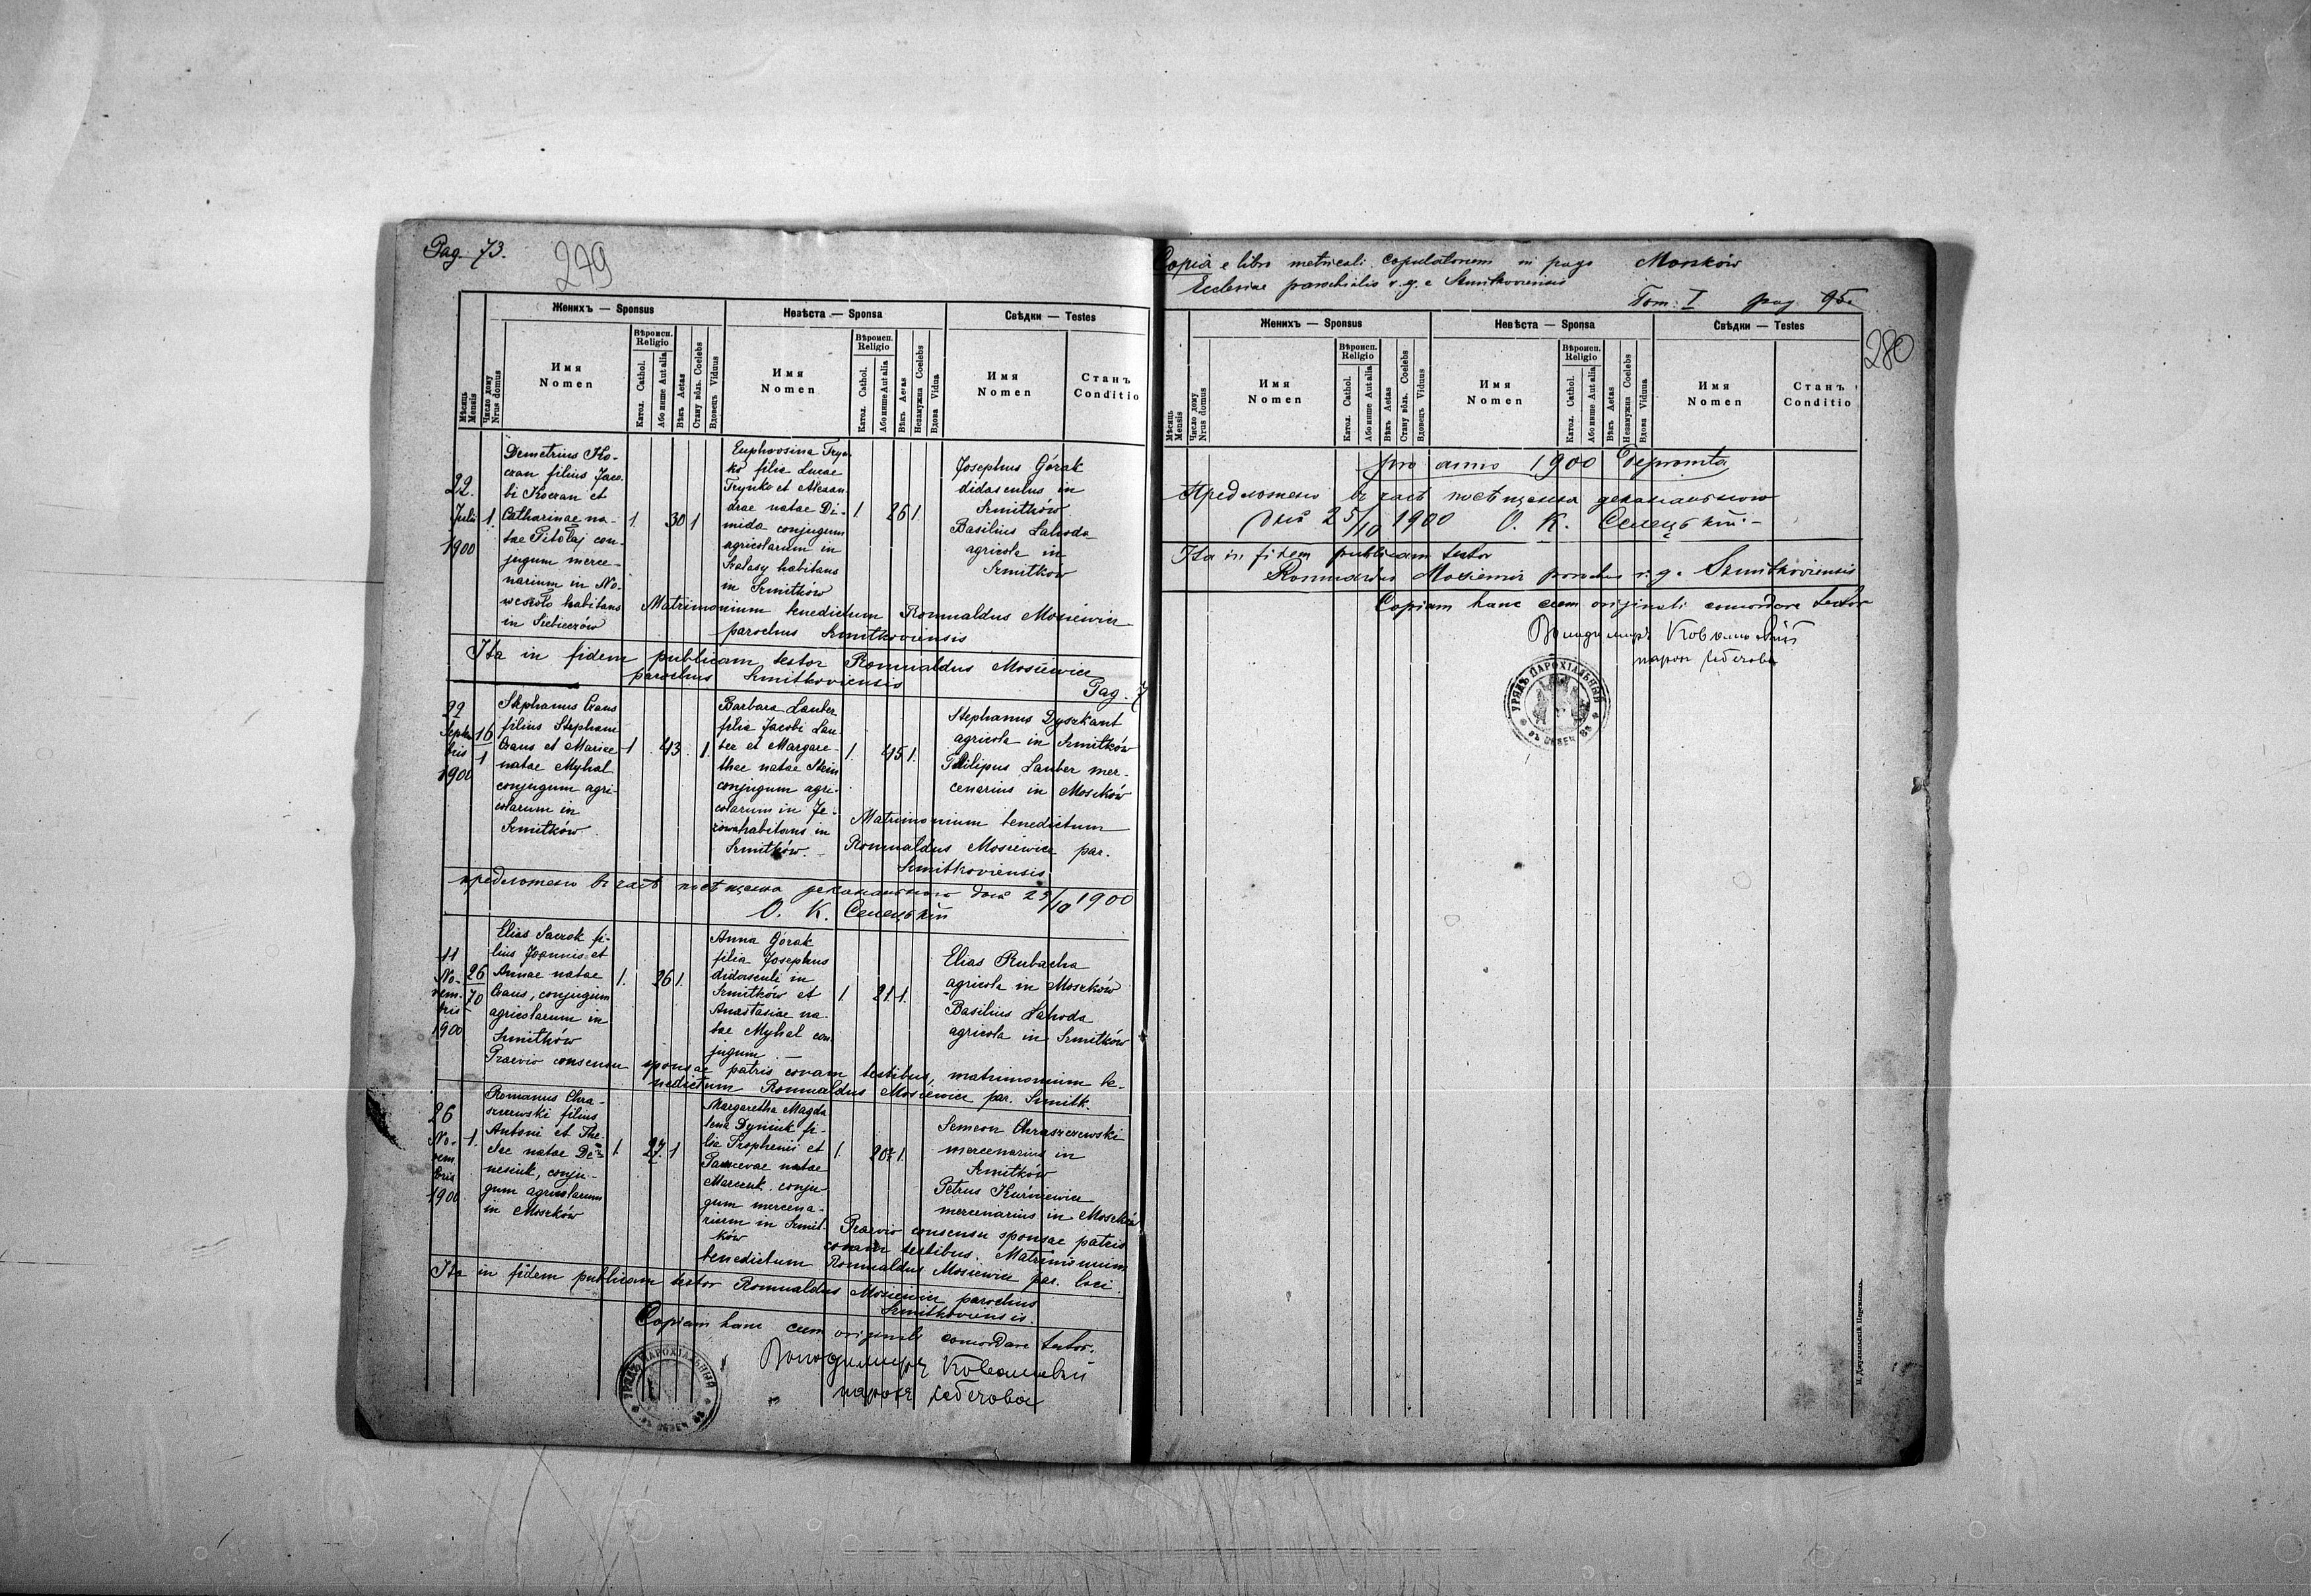 Pag. 73.
279
Женихъ — Sponsus
Невѣста — Sponsa
Свѣдки — Testes
Мѣсяць Mensis
Число дому Nrus domus
Имя
Nomen
Вѣроисп.
Religio
Катол. Cathol.
Або инше Aut alia
Вѣкъ Aetas
Стану вôль. Coelebs
Вдовець Viduus
Имя
Nomen
Вѣроисп.
Religio
Катол. Cathol.
Або инше Aut alia
Вѣкъ Aetas
Незамужна Coelebs
Вдова Vidua
Имя
Nomen
Станъ
Conditio
22.
Julii
1900
1.
Demetrius Ko-
czan filius Jaco-
bi Koczan et
Catharinae na-
tae Pitolaj con-
jugum merce-
narium in No-
wesioło habitans
in Siebieczów
1. 30 1
Euphrosina Fryn-
ko filia Lucae
Frynko et Alexan-
drae natae Di-
mida conjugum
agricolarum in
habitans
in Szmitków
1 26 1.
Josephus Górak
didasculus in
Szmitków
Basilius Lahoda
agricola in
Szmitków
Matrimonium benedictum Romualdus Mosiewicz
parochus Szmitkoviensis
Ita in fidem publicam testor Romualdus Mosiewicz
parochus Szmitkoviensis
Pag. 7
22
Septem
bris
1900
16
1
Stephanus Craus
filius Stephani
Craus et Mariae
natae Myhal
conjugum agri-
colarum in
Szmitków
1 43. 1.
Barbara Lauber
filia Jacobi Lau-
ber et Margare-
thae natae Stein
conjugum agri-
colarum in Je-
ziowa habitans in
Szmitków.
1. 45 1.
Stephanus Dyszkant
agricola in Szmitków
Philipus Lauber mer-
cenarius in Moszków
Matrimonium benedictum
Romualdus Mosiewicz par.
Szmitkoviensis
предложено въ часѣ посѣщенія деканального дня 25/10 1900
О. К. Селецькій
11
No-
vem-
bris
1900
26
70
Elias Saczok fi-
lius Joannis et
Annae natae
Craus, conjugum
agricolarum in
Szmitków
1. 26 1.
Anna Górak
filia Josephus
didasculi in
Szmitków et
Anastasiae na-
tae Myhal con
jugum
1. 21 1.
Elias Rubacha
agricola in Moszków
Basilius Lahoda
agricola in Szmitków
Praevio consensu sponsae patris coram testibus, matrimonium be-
nedictum Romualdus Mosiewicz par. Szmitk.
26
No-
vem
bris
1900
1.
Romanus Chra-
szczewski filius
Antoni et The-
clae natae De-
nesiuk, conju-
gum agricolarum
in Moszków
1. 27. 1
Margaretha Magda
lena Dyniuk fi-
lia Prophenii et
natae
Marczuk conju
gum mercena-
rium in Szmit-
ków
1. 20½ 1.
Semeon Chraszczewski
mercenarius in
Szmitków
Petrus Kuśniewicz
mercenarius in Moszków
Praevio consensu sponsae patris
coram testibus. Matrimonium
benedictum Romualdus Mosiewicz par. loci.
Ita in fidem publicam testor Romualdus Mosiewicz parochus
Szmitkoviensis.
Copiam hanc cum originali concordare testor.
Володимиръ Ковалискій
парохъ Себечова
УРЯДЪ ПАРОХІАЛЬНЫЙ
Copia e libro metricali copulatorum in pago Moszków
Ecclesiae parochialis r. g. c Szmitkoviensis
Tom: I pag. 95.
280
Женихъ — Sponsus
Невѣста — Sponsa
Свѣдки — Testes
Мѣсяць Mensis
Число дому Nrus domus
Имя
Nomen
Вѣроисп.
Religio
Катол. Cathol.
Або инше Aut alia
Вѣкъ Aetas
Стану вôль. Coelebs
Вдовець Viduus
Имя
Nomen
Вѣроисп.
Religio
Катол. Cathol.
Або инше Aut alia
Вѣкъ Aetas
Незамужна Coelebs
Вдова Vidua
Имя
Nomen
Станъ
Conditio
pro anno 1900 deprompta
Предложено въ часѣ посѣщенія деканального
дня 25/10 1900 О. К. Селецькій
Ita in fidem publicam testor
Romualdus Mosiewicz parochus r. g. c Szmitkoviensis
Copiam hanc cum originali concordare testor
Володимиръ Ковалискій
парох Себечова
УРЯДЪ ПАРОХІАЛЬНЫЙ
И. Джулыньскій Перемышль.